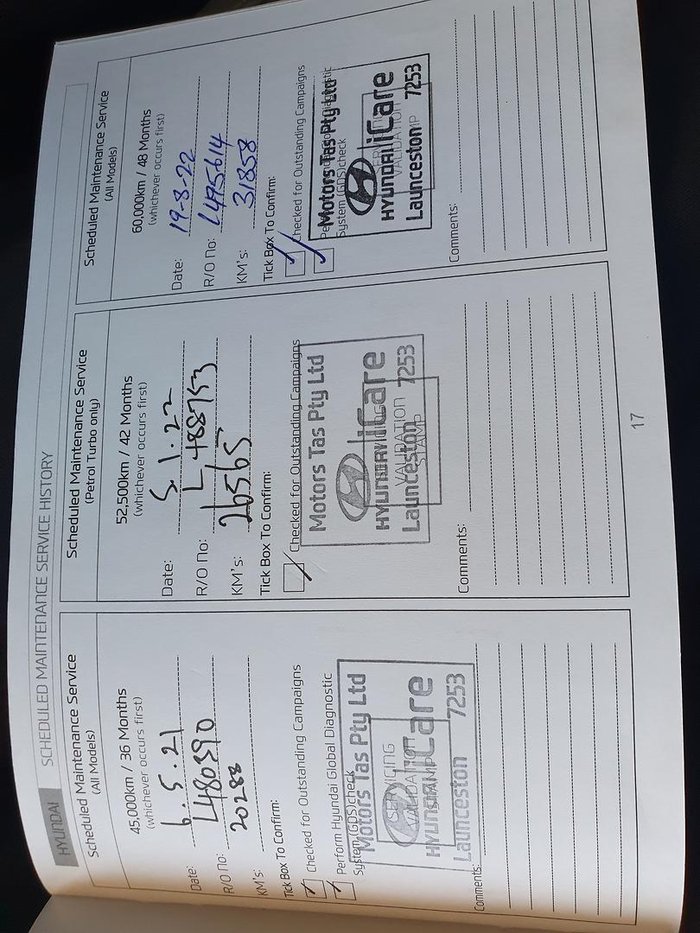 HYUNDAI
SCHEDULED MAINTENANCE SERVICE HISTORY
Scheduled Maintenance Service
(All Models)
45,000km / 36 Months
(whichever occurs first)
Date: 6.5.21
R/O No: L480390
KM's: 20288
Tick Box To Confirm:
Checked for Outstanding Campaigns
Perform Hyundai Global Diagnostic
System (GDS) check
Motors Tas Pty Ltd
SERVICING
VALIDATION
STAMP
HYUNDAI iCare
Launceston 7253
Comments:
Scheduled Maintenance Service
(Petrol Turbo only)
52,500km / 42 Months
(whichever occurs first)
Date: 5.1.22
R/O No: L488753
KM's: 26565
Tick Box To Confirm:
Checked for Outstanding Campaigns
Motors Tas Pty Ltd
SERVICING
VALIDATION
STAMP
HYUNDAI iCare
Launceston 7253
Comments:
Scheduled Maintenance Service
(All Models)
60,000km / 48 Months
(whichever occurs first)
Date: 19-8-22
R/O No: L495614
KM's: 31858
Tick Box To Confirm:
Checked for Outstanding Campaigns
System (GDS) check
Motors Tas Pty Ltd
VALIDATION
HYUNDAI iCare
Launceston 7253
Comments:
17